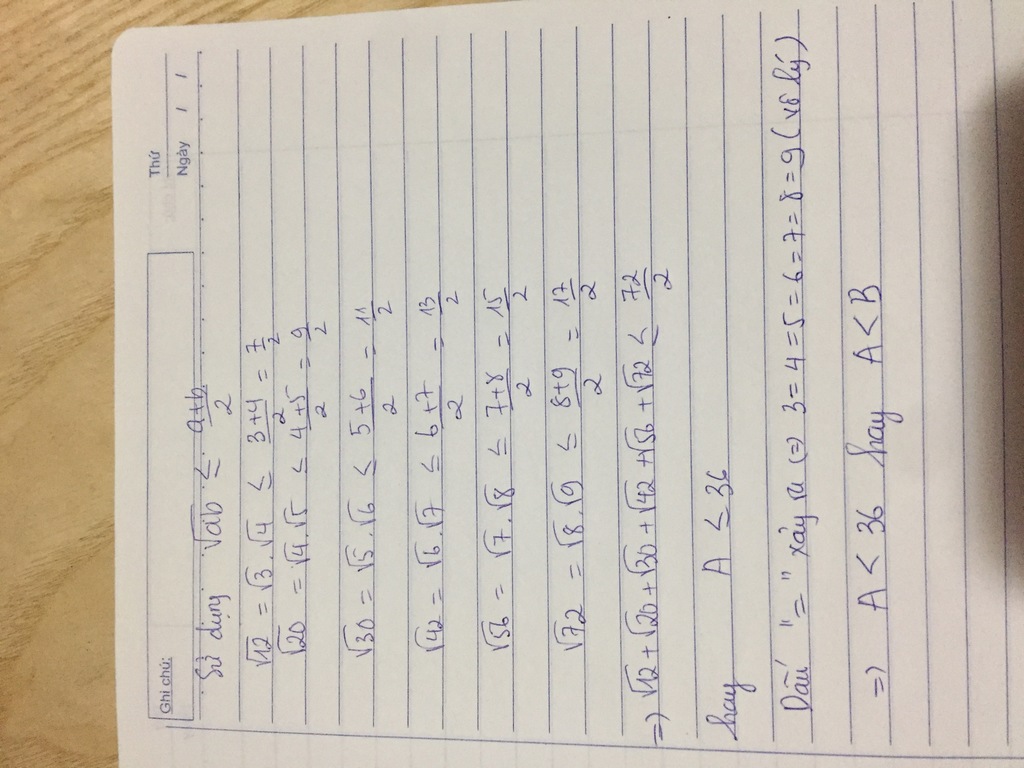 Ghi chú:
Thứ
Ngày / /
Sử dụng √ab ≤ (a+b)/2
√12 = √3.√4 ≤ (3+4)/2 = 7/2
√20 = √4.√5 ≤ (4+5)/2 = 9/2
√30 = √5.√6 ≤ (5+6)/2 = 11/2
√42 = √6.√7 ≤ (6+7)/2 = 13/2
√56 = √7.√8 ≤ (7+8)/2 = 15/2
√72 = √8.√9 ≤ (8+9)/2 = 17/2
=> √12 + √20 + √30 + √42 + √56 + √72 ≤ 72/2
hay A ≤ 36
Dấu "=" xảy ra (=) 3=4=5=6=7=8=9 (vô lý)
=> A < 36 hay A < B